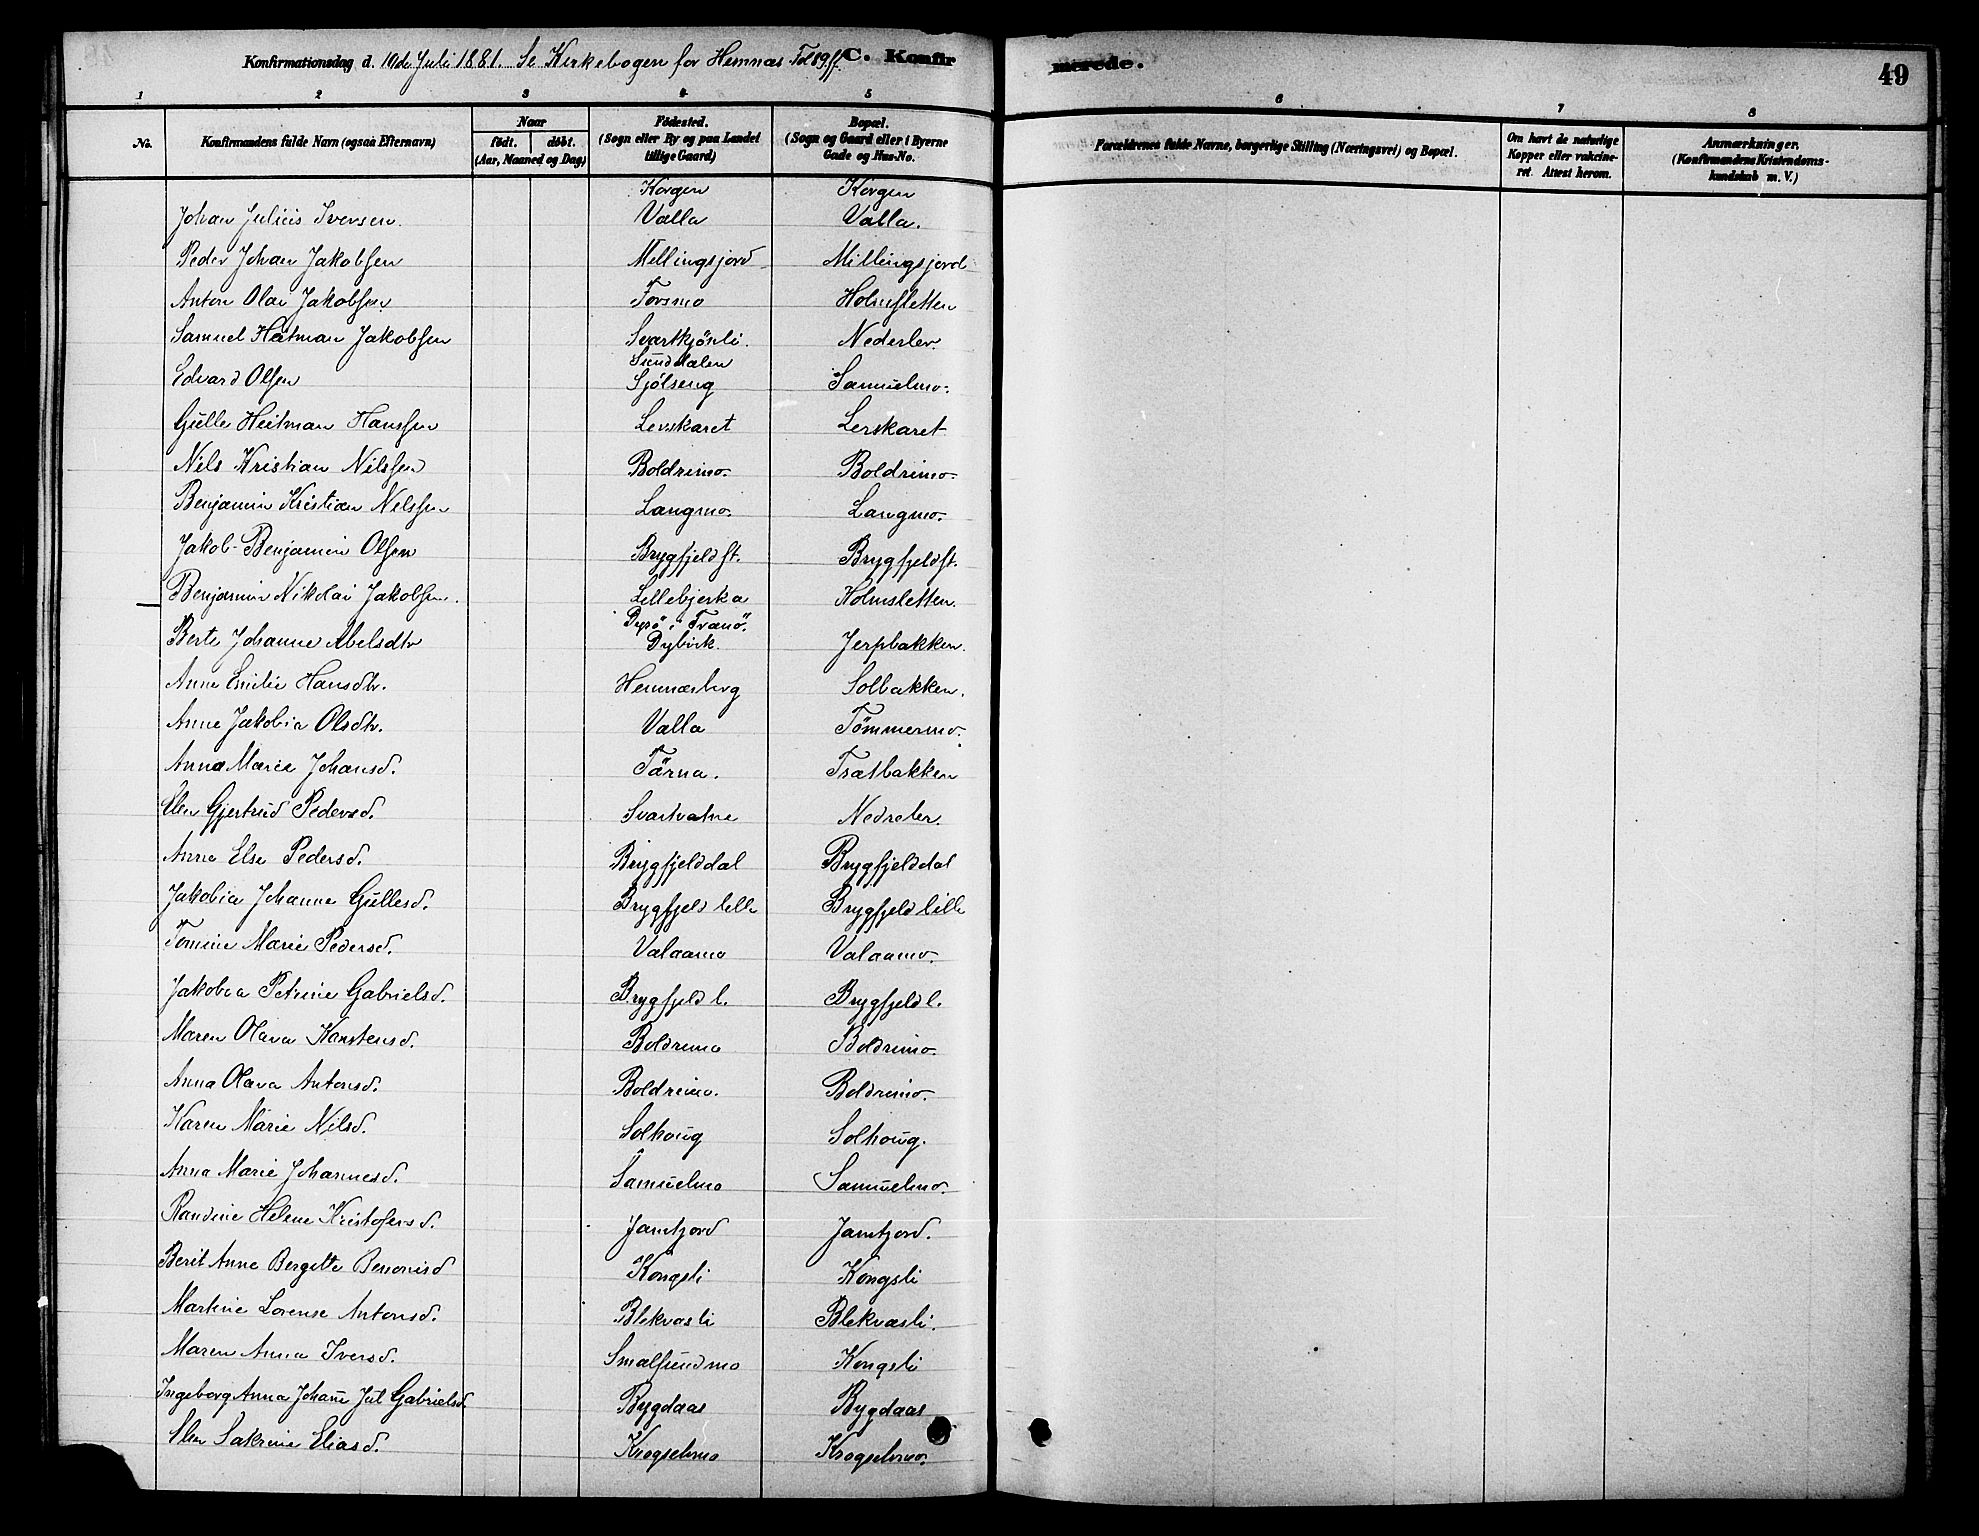 Konfirmationsdag d. 10de Juli 1881. Se Kirkebogen for Hemnæs Fol 89 ff. C. Konfirmerede. 49
1 2 3 4 5 6 7 8
No. Konfirmandens fulde Navn (ogsaa Efternavn) Naar født. døbt. (Aar, Maaned og Dag) Fødested. (Sogn eller By og paa Landet tillige Gaard) Bopæl. (Sogn og Gaard eller i Byerne Gade og Hus-No. Forældrenes fulde Navne, borgerlige Stilling (Næringsvei) og Bopæl. Om havt de naturlige Kopper eller vakcineret. Attest herom. Anmærkninger. (Konfirmandens Kristendomskundskab m. V.)
Korgen Korgen
Johan Julius Iversen. Valla Valla.
Peder Johan Jakobsen Millingsjord Millingsjord
Anton Olai Jakobsen Forsmo Holmsletten
Samuel Heitman Jakobsen Svartkjönli. Nederler.
Sunddalen
Edvard Olsen Sjölseng Samuelmo.
Gulle Heitman Hanssen Lerskaret Lerskaret
Nils Kristian Nilssen Boldremo. Boldremo.
Benjamin Kristian Nilssen Langmo. Langmo.
Jakob Benjamin Olsen Brygfjeld st. Brygfjeld st.
Benjamin Nikolai Jakobsen. Lillebjerka Holmsletten.
Dyrö i Tranö.
Berte Johanne Abelsdtr Dybvik. Jerpbakken.
Anne Emilie Hansdtr. Hemnæsberg Solbakken.
Anne Jakobia Olsdtr. Valla Tömmermo.
Anna Marie Johansd. Tärna. Tsatbakken
Elen Gjertrud Pedersd. Svartvatne Nedreler.
Anne Else Pedersd. Brygfjelddal Brygfjelddal
Jakobia Johanne Gullesd. Brygfjeld lille Brygfjeld lille
Tomine Marie Pedersd. Valaamo Valaamo.
Jakobia Petrine Gabrielsd. Brygfjeld l. Brygfjeld l.
Maren Olava Karstensd. Boldremo Boldremo.
Anna Olava Antonsd. Boldremo. Boldremo.
Karen Marie Nilsd. Solhoug Solhoug.
Anna Marie Johannesd. Samuelmo Samuelmo.
Randine Helene Kristofersd. Jamtjord Jamtjord.
Berit Anne Bergitte Benonisd Kongsli Kongsli
Martine Lorense Antonsd. Blekvasli Blekvasli.
Maren Anna Iversd. Smalsundmo Kongsli
Ingeborg Anna Johane Jul Gabrielsd Bygdaas Bygdaas
Elen Sakrine Eliasd. Krogselvmo Krogselvmo.